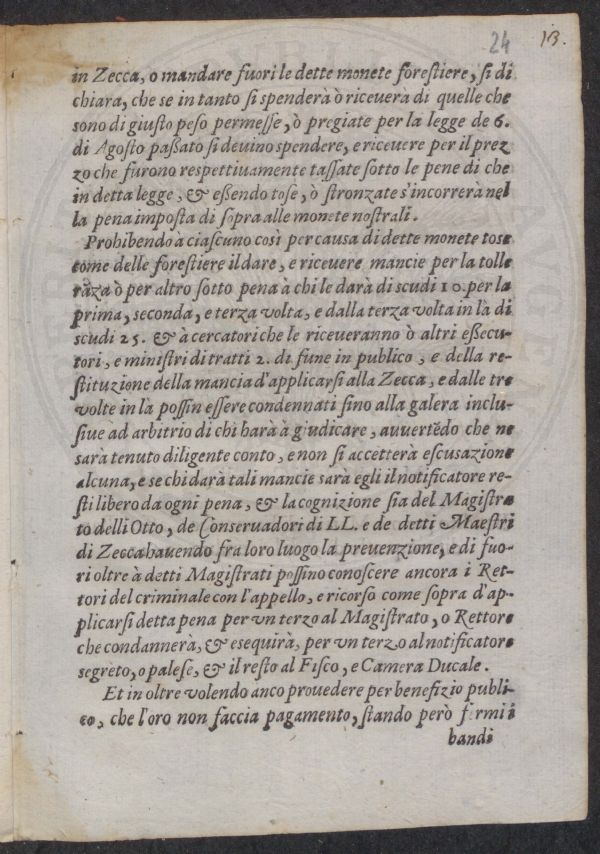 24 13.
in Zecca, o mandare fuori le dette monete forestiere, si di
chiara, che se in tanto si spenderà ò riceuerà di quelle che
sono di giusto peso permesse, ò pregiate per la legge de 6.
di Agosto passato si deuino spendere, e riceuere per il prez
zo che furono respettiuamente tassate sotto le pene di che
in detta legge, & essendo tose, ò stronzate s'incorrerà nel
la pena imposta di sopra alle monete nostrali.
Prohibendo à ciascuno così per causa di dette monete tose
come delle forestiere il dare, e riceuere mancie per la tolle
rãza ò per altro sotto pena à chi le darà di scudi 10. per la
prima, seconda, e terza volta, e dalla terza volta in là di
scudi 25. & à cercatori che le riceueranno ò altri essecu-
tori, e ministri di tratti 2. di fune in publico, e della re-
stituzione della mancia d'applicarsi alla Zecca, e dalle tre
volte in là possin essere condennati fino alla galera inclu-
siue ad arbitrio di chi harà à giudicare, auuertẽdo che ne
sarà tenuto diligente conto, e non si accetterà escusazione
alcuna, e se chi darà tali mancie sarà egli il notificatore re-
sti libero da ogni pena, & la cognizione sia del Magistra
to delli Otto, de Conseruadori di LL. e de detti Maestri
di Zecca hauendo fra loro luogo la preuenzione, e di fuo-
ri oltre à detti Magistrati possino conoscere ancora i Ret-
tori del criminale con l'appello, e ricorso come sopra d'ap-
plicarsi detta pena per vn terzo al Magistrato, o Rettore
che condannerà, & esequirà, per vn terzo al notificatore
segreto, o palese, & il resto al Fisco, e Camera Ducale.
Et in oltre volendo anco prouedere per benefizio publi-
co, che l'oro non faccia pagamento, stando però fermi i
bandi